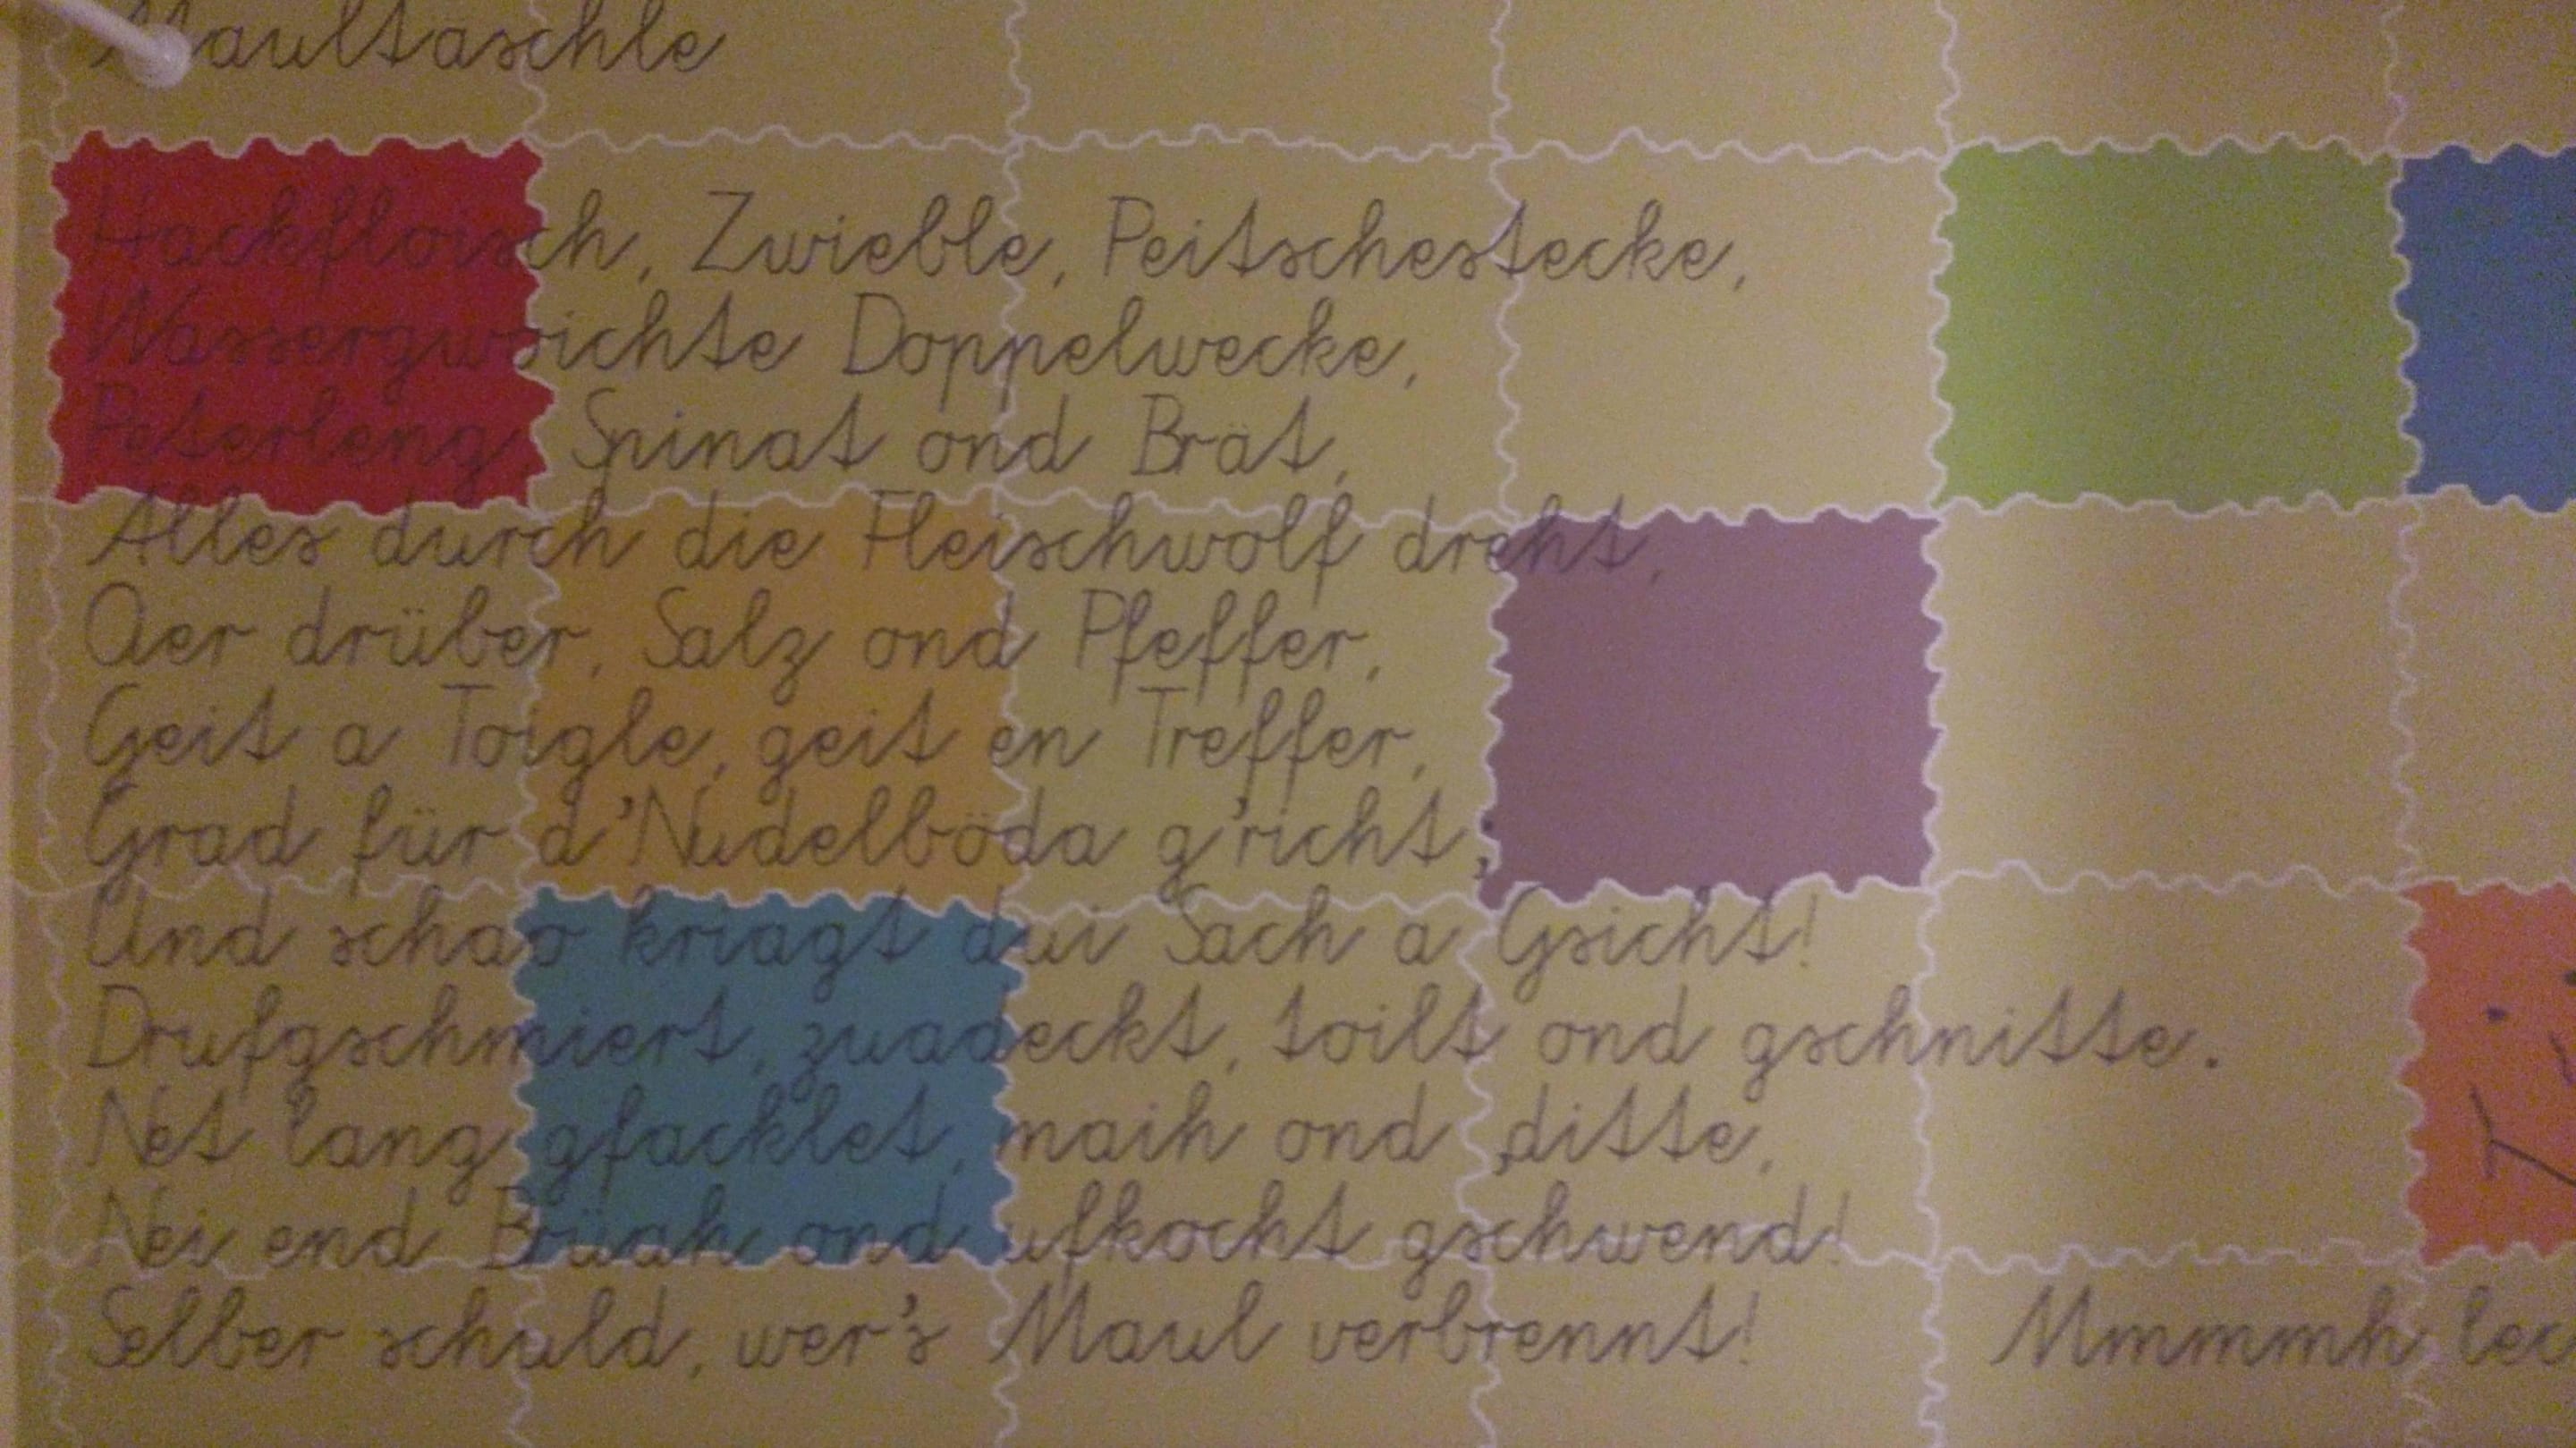 Maultäschle
Hackfloisch, Zwieble, Peitschestecke,
Wassergwoichte Doppelwecke,
Peterleng, Spinat ond Brät,
Alles durch die Fleischwolf dreht,
Oer drüber, Salz ond Pfeffer,
Geit a Toigle, geit en Treffer,
Grad für d'Nudelböda g'richt,
Und schao kriagt dui Sach a Gsicht!
Drufgschmiert, zuadeckt, toilt ond gschnitte.
Net lang gfacklet, maih ond ditte,
Nei end Brüah ond ufkocht gschwend!
Selber schuld, wer's Maul verbrennt! Mmmmh lec